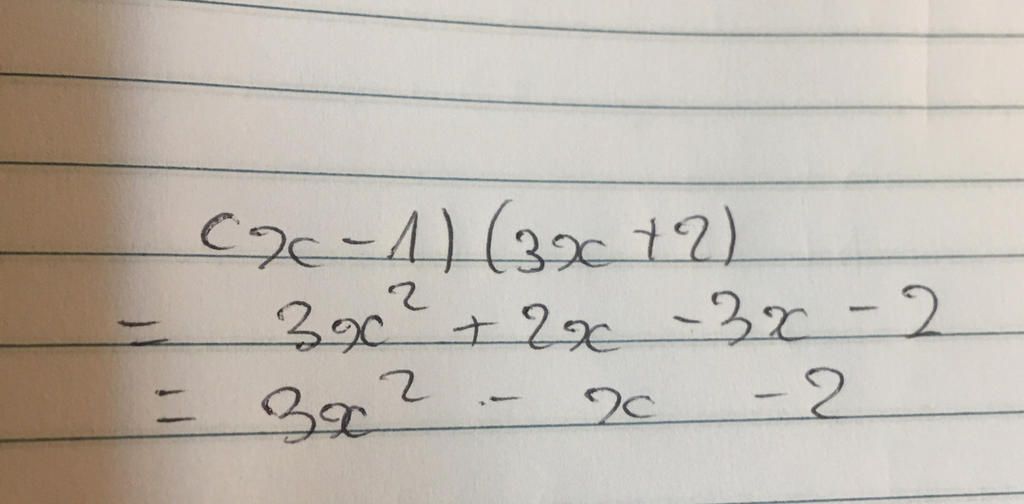 (x - 1) (3x + 2)
= 3x² + 2x - 3x - 2
= 3x² - x - 2